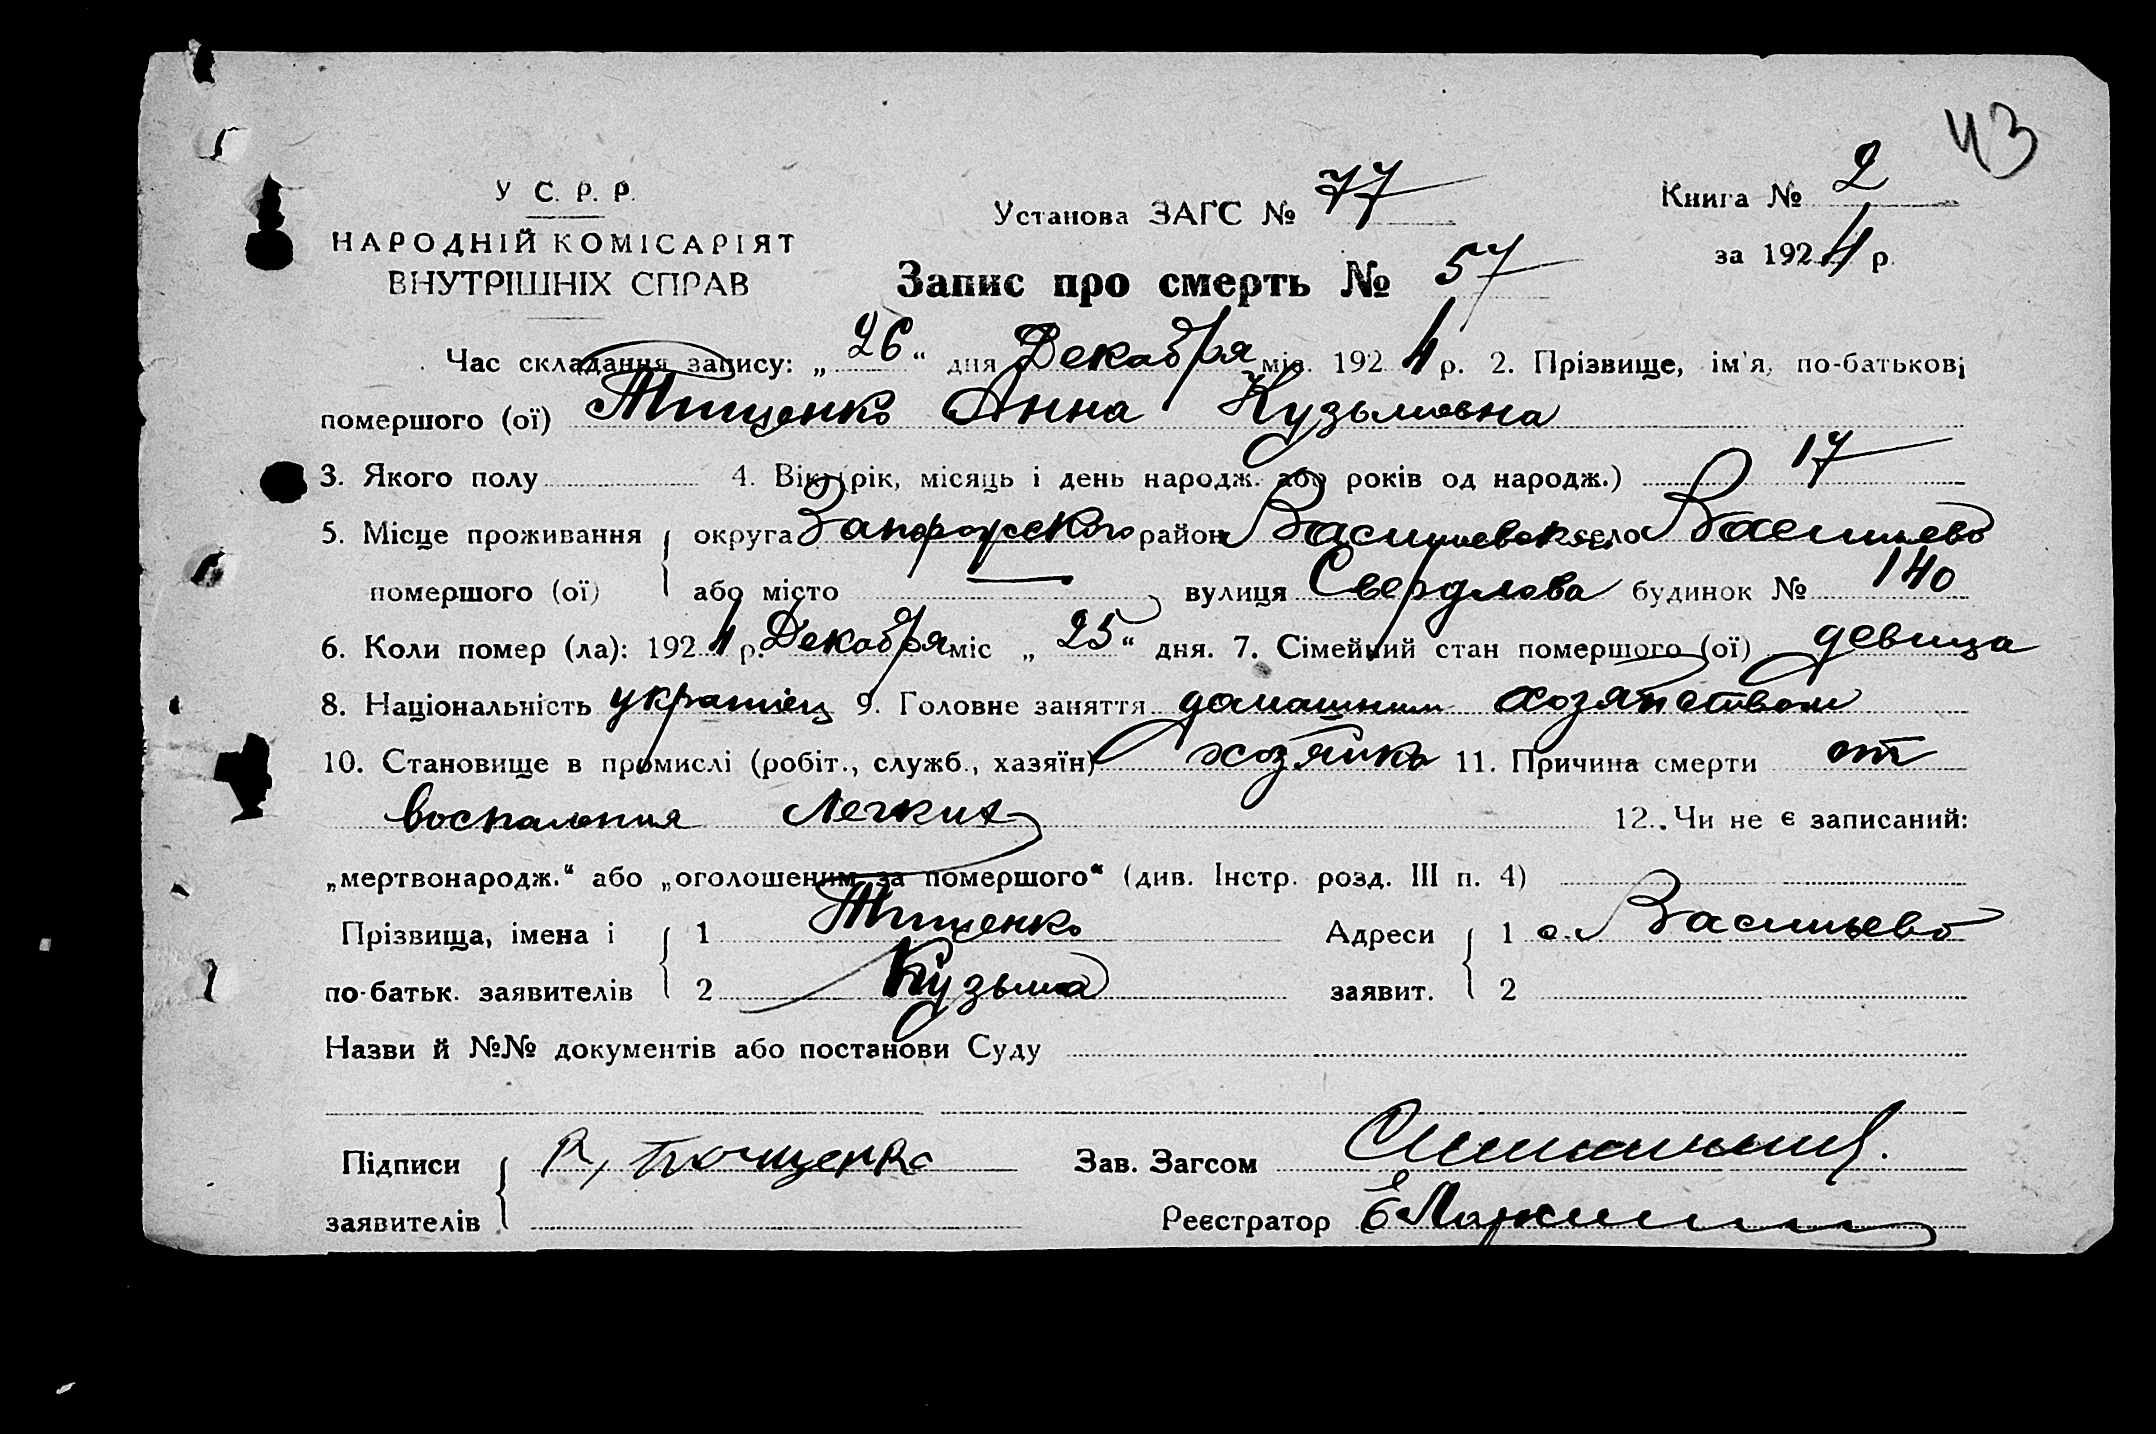 43
У С. Р. Р.
НАРОДНІЙ КОМІСАРІЯТ
ВНУТРІШНІХ СПРАВ
Установа ЗАГС № 77
Книга № 2
за 1924 р.
Запис про смерть № 57
Час складання запису: „26“ дня Декабря міс. 1924 р. 2. Прізвище, ім'я, по-батькові
помершого (ої) Тищенко Анна Кузьмовна
3. Якого полу 4. Вік (рік, місяць і день народж. або років од народж.) 17
5. Місце проживання { округа Запорожского район Васильевск село Васильево
помершого (ої) або місто — вулиця Свердлова будинок № 140
6. Коли помер (ла): 1924 р. Декабря міс „25“ дня. 7. Сімейний стан помершого (ої) девица
8. Національність украинец 9. Головне заняття домашним хозяйством
10. Становище в промислі (робіт., служб., хазяїн) хозяйка 11. Причина смерти от
воспаления легких 12. Чи не є записаний:
„мертвонародж.“ або „оголошеним за помершого“ (див. Інстр. розд. III п. 4)
Прізвища, імена і { 1 Тищенко Адреси { 1 с. Васильево
по-батьк. заявителів 2 Кузьма заявит. 2
Назви й №№ документів або постанови Суду
Підписи { К, Тыщенко Зав. Загсом
заявителів Реєстратор